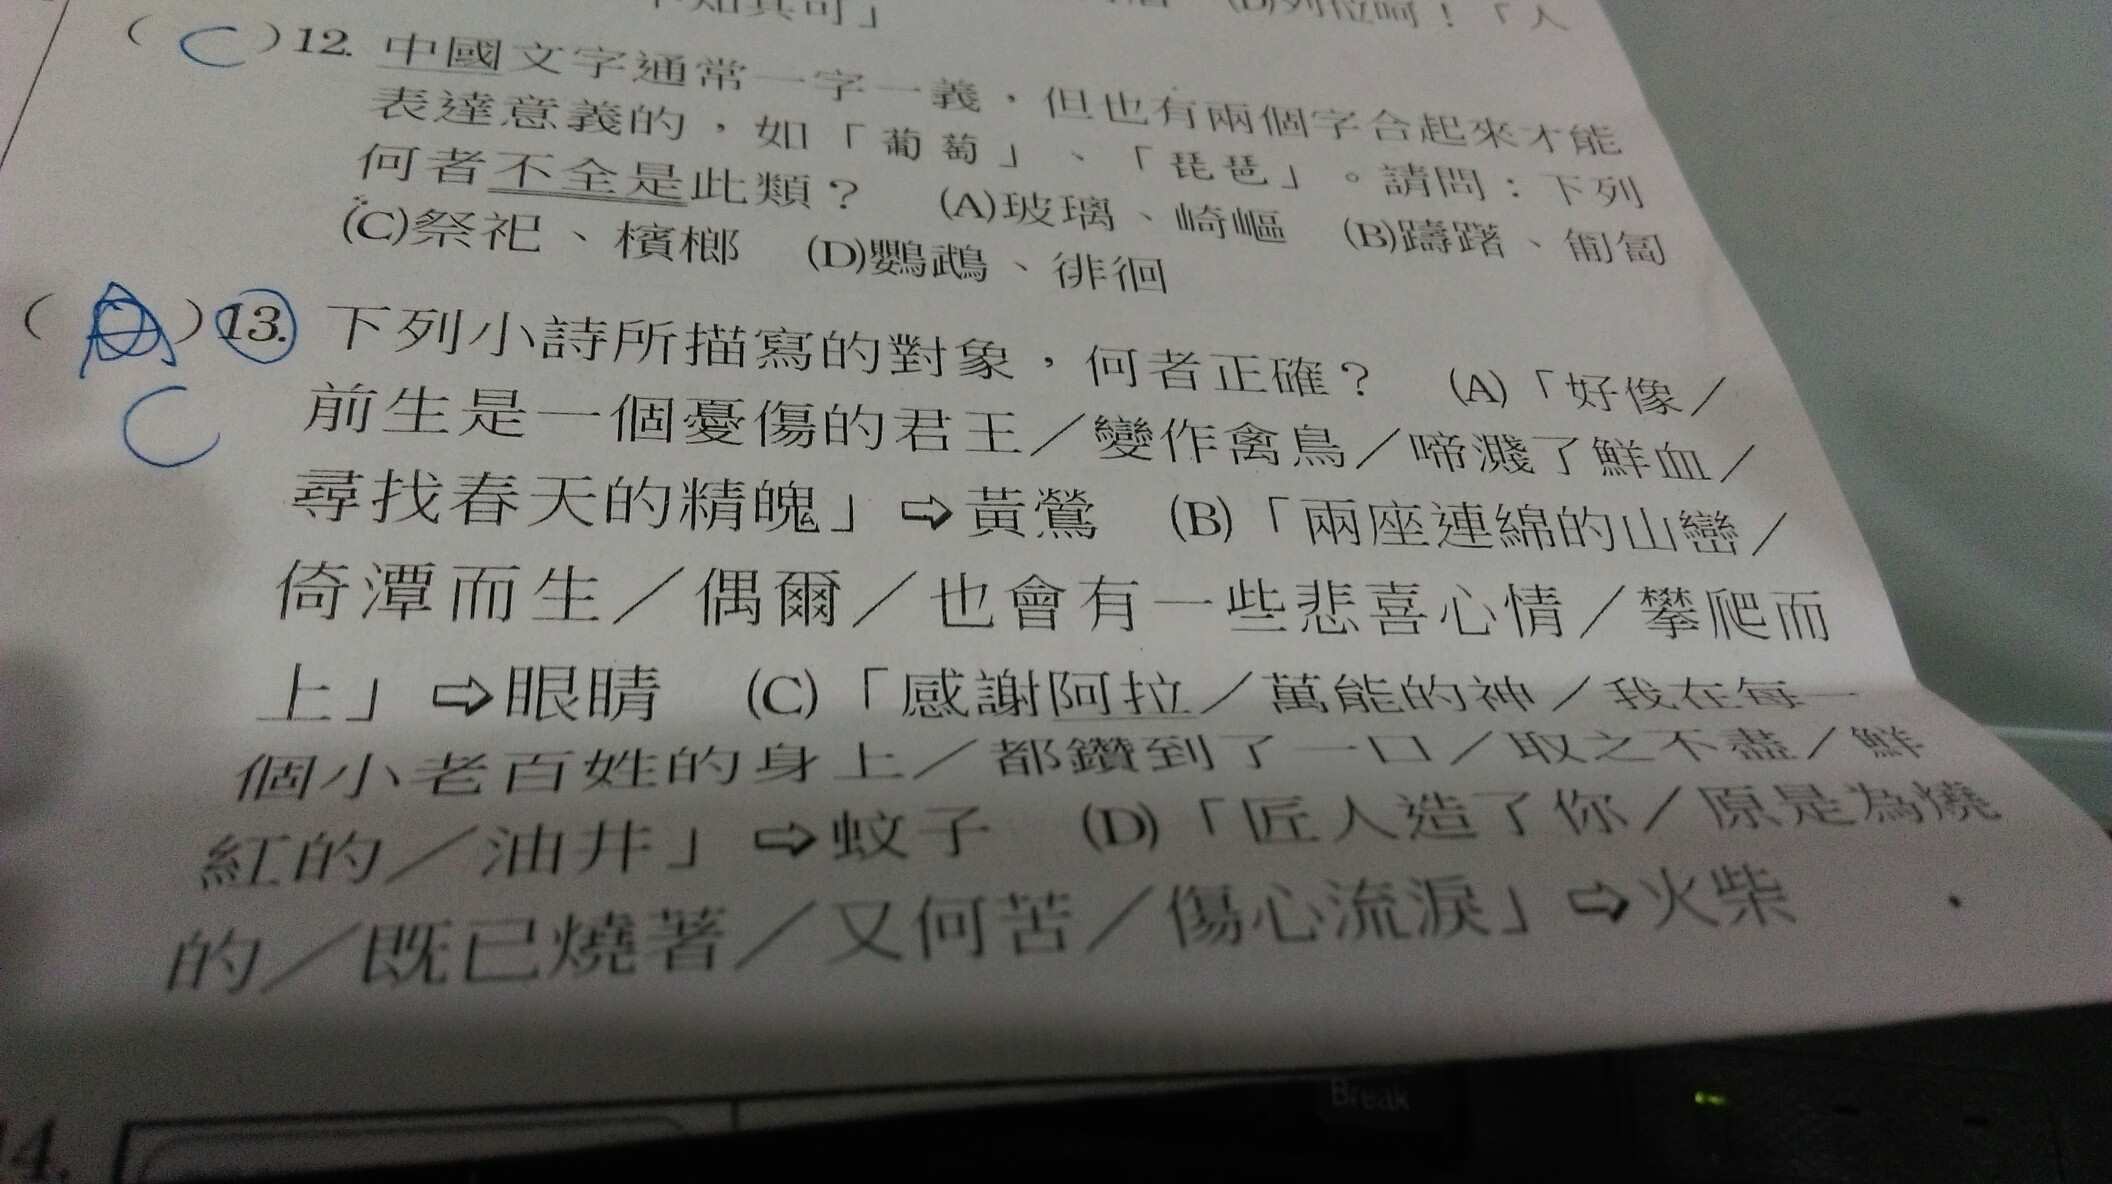 (C)12. 中國文字通常一字一義，但也有兩個字合起來才能
表達意義的，如「葡萄」、「琵琶」。請問：下列
何者不全是此類？ (A)玻璃、崎嶇 (B)躊躇、匍匐
(C)祭祀、檳榔 (D)鸚鵡、徘徊
( )13. 下列小詩所描寫的對象，何者正確？ (A)「好像／
C
前生是一個憂傷的君王／變作禽鳥／啼濺了鮮血／
尋找春天的精魄」⇨黃鶯 (B)「兩座連綿的山巒／
倚潭而生／偶爾／也會有一些悲喜心情／攀爬而
上」⇨眼睛 (C)「感謝阿拉／萬能的神／我在每一
個小老百姓的身上／都鑽到了一口／取之不盡／鮮
紅的／油井」⇨蚊子 (D)「匠人造了你／原是為燒
的／既已燒著／又何苦／傷心流淚」⇨火柴
14.
Break